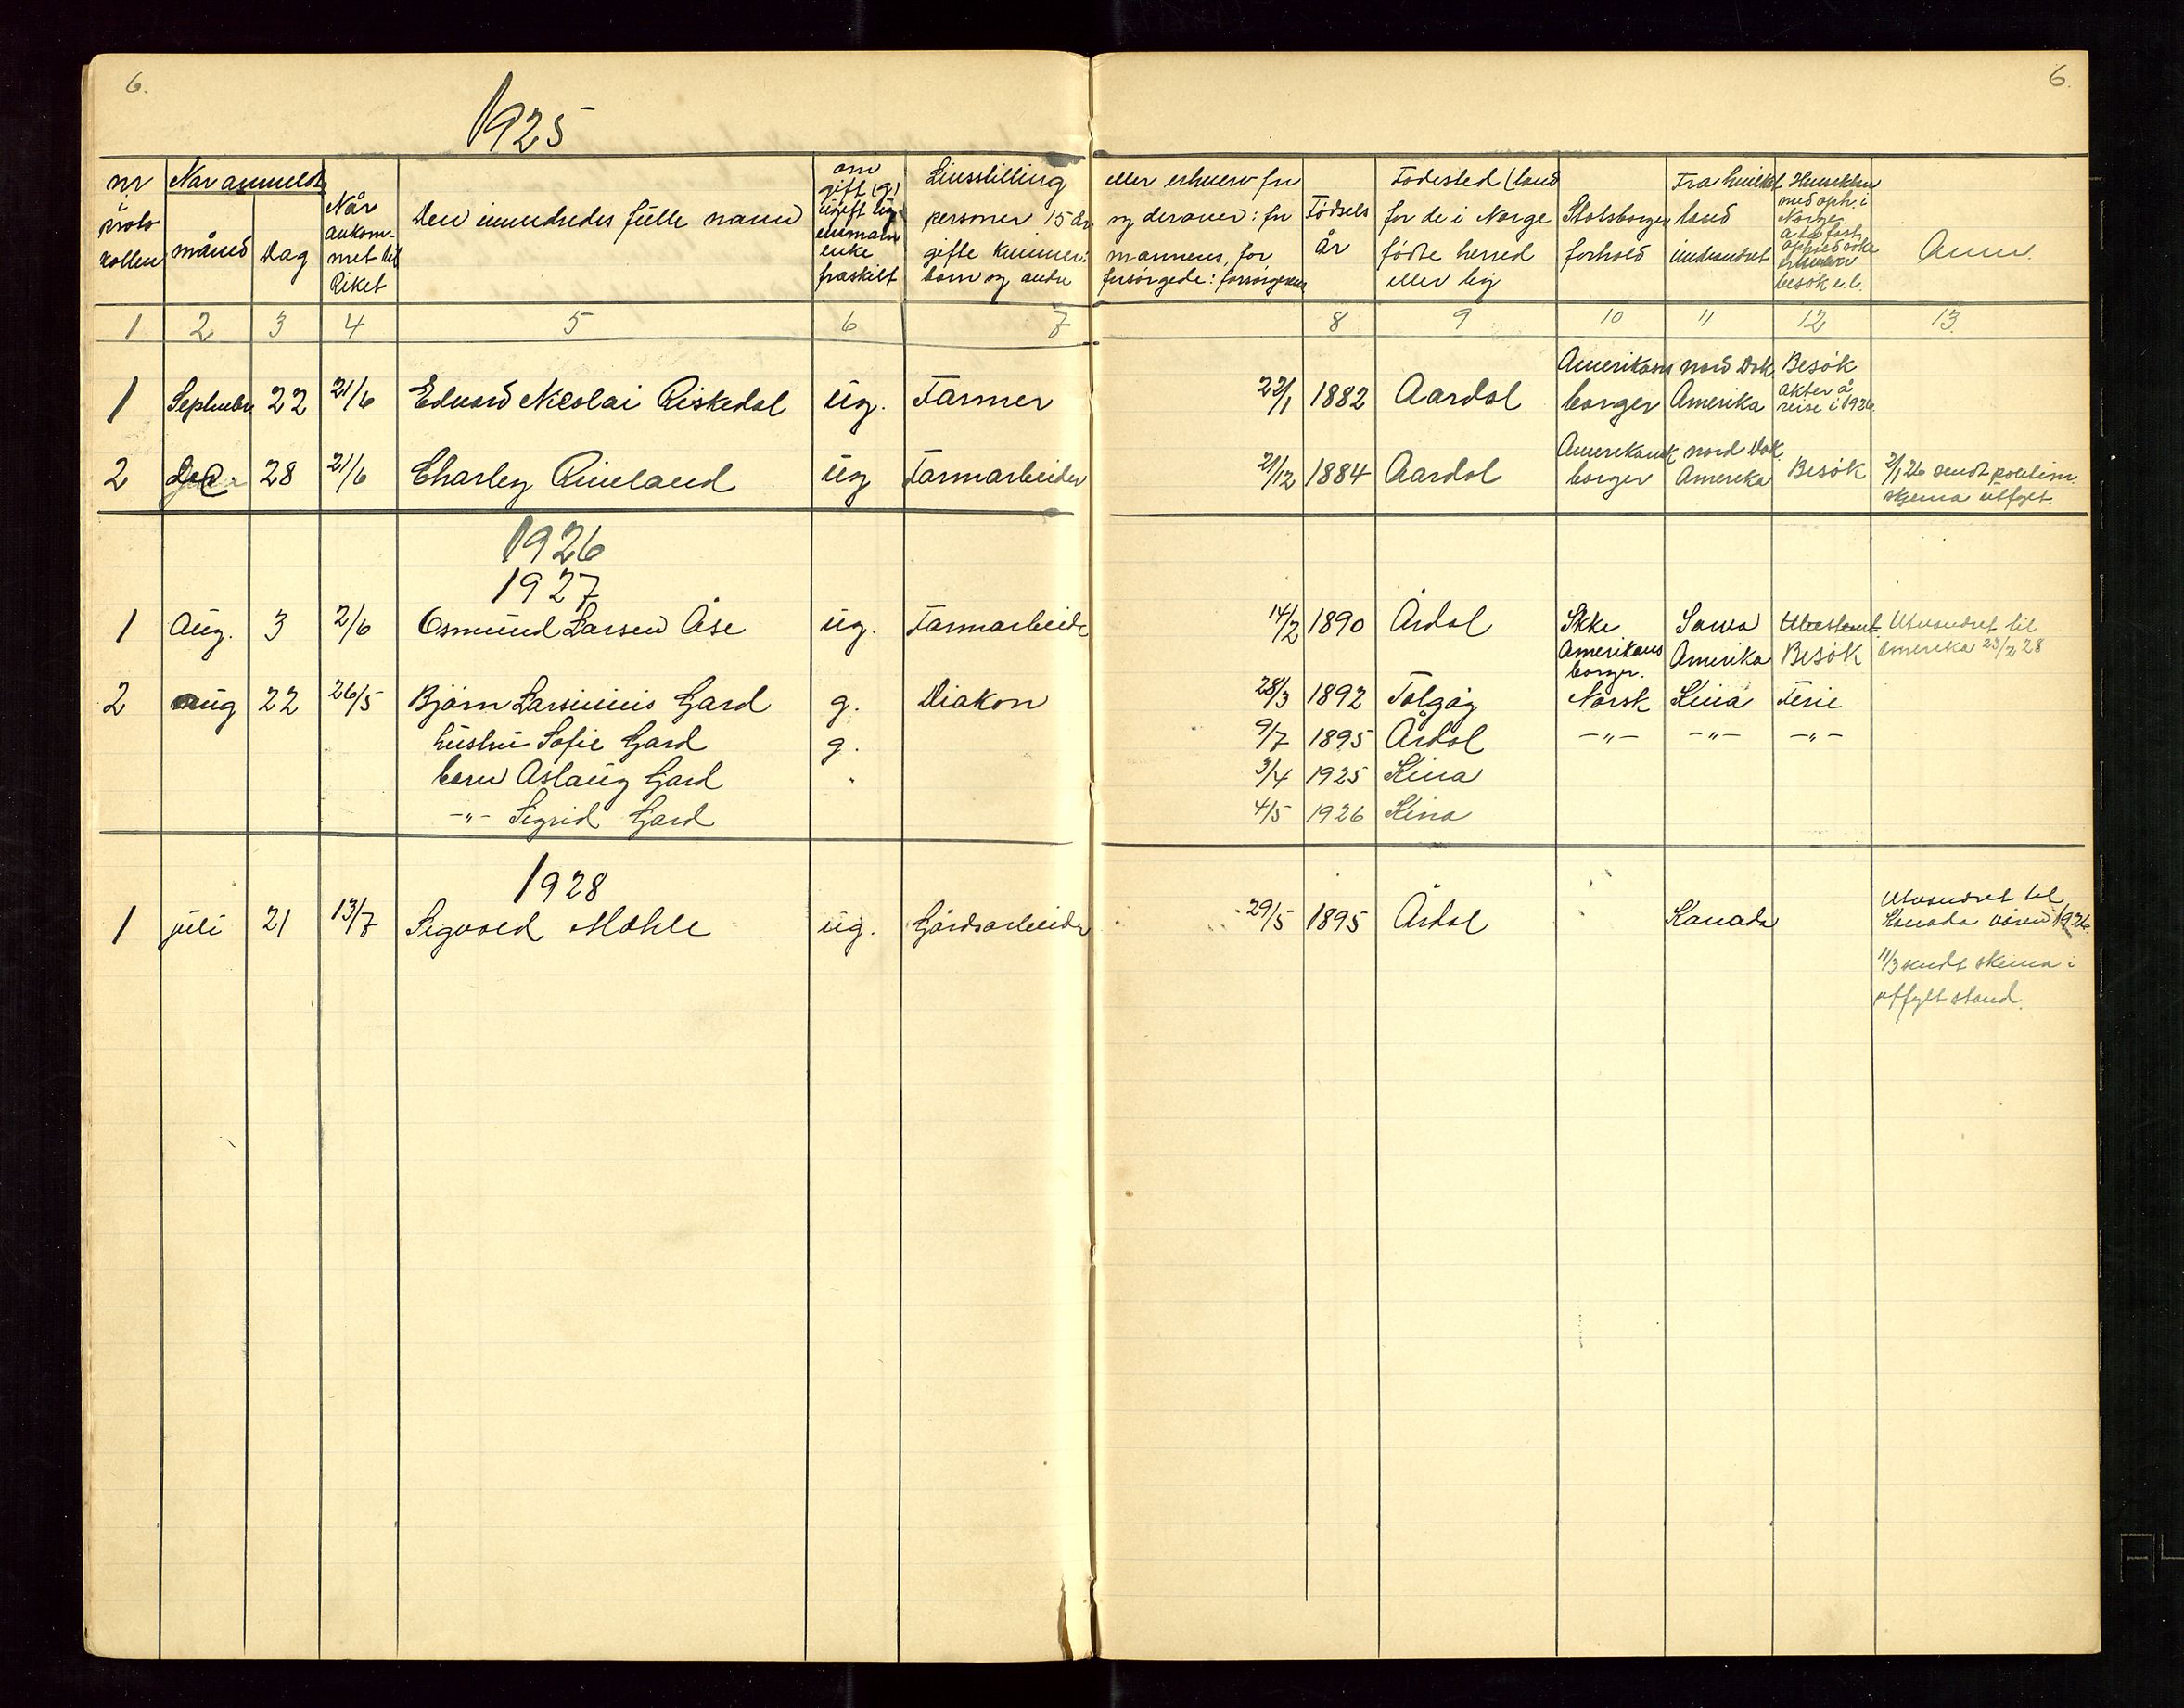 6. 6.
1925
nr i protokollen
Når anmeldt
måned
Dag
Når
ankom-
met til
Riket
Den innvandredes fulle navn
om
gift (g)
ugift ug
enkemann
enke
fraskilt
Livsstilling
personer 15 år
gifte kvinner:
barn og andre
eller erhverv for
og derover: for
mannens, for
forsörgede: forsörgerens
Födsels
år
Födested (land
for de i Norge
födte herred
eller by
Statsborger
forhold
Fra hvilket
land
innvandret
Hensikten
med oph. i
Norge
besök e.l.
Anm.
1 2 3 4 5 6 7 8 9 10 11 12 13
1 September 22 21/6 Edvard Nicolai Riskedal ug. Farmer 22/1 1882 Aardal Amerikansk borger Nord Dak. Amerika Besök akter å reise i 1926
2 Dec. 28 21/6 Charley Rineland ug Farmarbeider 21/12 1884 Aardal Amerikansk borger Nord Dak. Amerika Besök 2/1 26 sendt skjema utfylt.
1926
1927
1 Aug. 3 2/6 Osmund Larsen Åse ug. Farmarbeide 14/2 1890 Årdal Ikke Amerikans borger. Iowa Amerika Ubestemt Besök Utvandret til Amerika 23/2 28
2 aug 22 26/5 Björn Larsinius Gard g. Diakon 28/3 1892 Norsk Kina Ferie
hustru Sofie Gard g. 9/7 1895 Årdal -"- -"- -"-
barn Aslaug Gard 3/4 1925 Kina
-"- Sigrid Gard 4/5 1926 Kina
1928
1 juli 21 13/7 Sigvald Mæhle ug. Gårdsarbeider 29/5 1895 Årdal Kanada Utvandret til
Kanada våren 1926.
11/3 sendt skema i
utfylt stand.